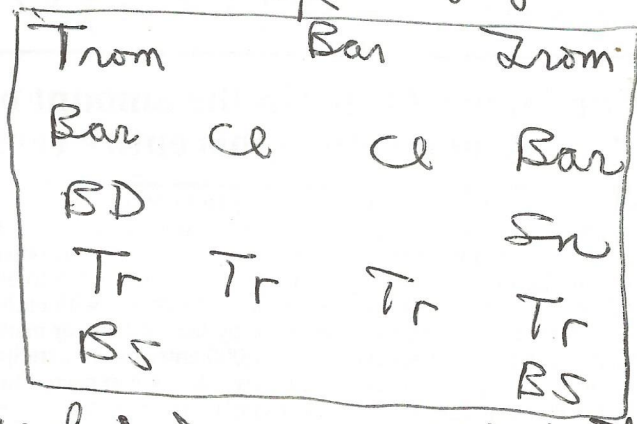 Trom Bar Trom
Bar Cl Cl Bar
BD
Sn
Tr Tr Tr Tr
BS BS